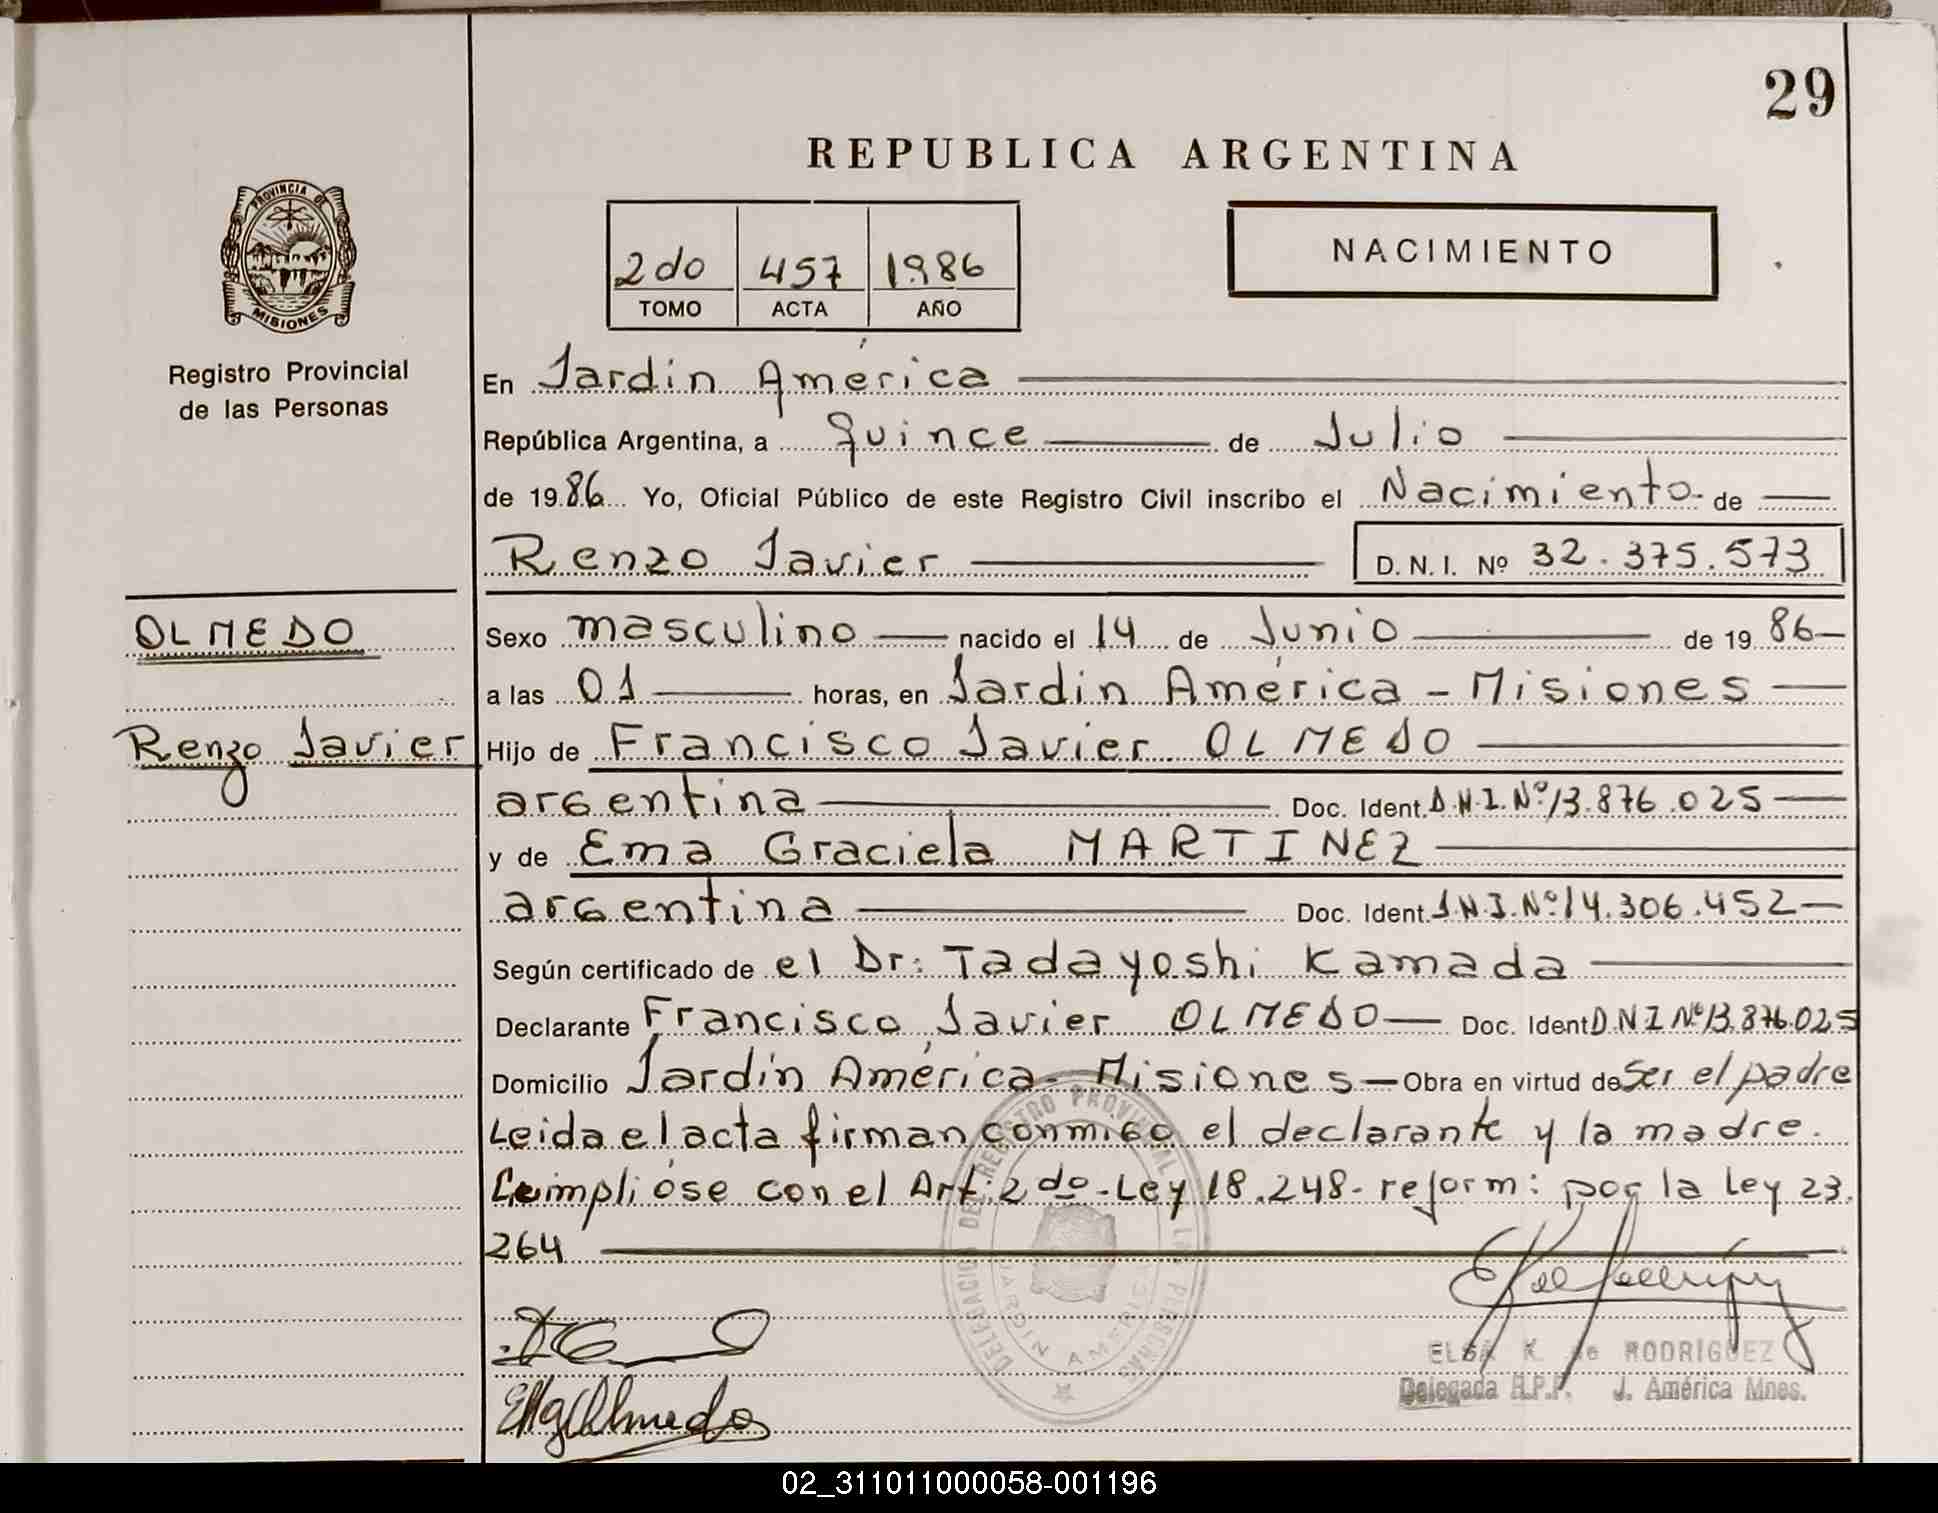 29
REPUBLICA ARGENTINA
PROVINCIA DE
MISIONES
2do 457 1986
TOMO ACTA AÑO
NACIMIENTO
Registro Provincial
de las Personas
En Jardín América
República Argentina, a quince de Julio
de 1986 Yo, Oficial Público de este Registro Civil inscribo el Nacimiento de
Renzo Javier D.N.I. Nº 32.375.573
OLMEDO
Renzo Javier
Sexo masculino nacido el 14 de Junio de 1986
a las 01 horas, en Jardín América - Misiones
Hijo de Francisco Javier OLMEDO
argentina Doc. Ident. D.N.I. Nº 13.876.025
y de Ema Graciela MARTINEZ
argentina Doc. Ident. D.N.I. Nº 14.306.452
Según certificado de el Dr: Tadayoshi Kamada
Declarante Francisco Javier OLMEDO Doc. Ident D.N.I Nº 13.876.025
Domicilio Jardín América - Misiones Obra en virtud de ser el padre
Leida el acta firman conmigo el declarante y la madre.
Cumplióse con el Art: 2do - Ley 18.248 - reform: por la Ley 23.
264
DELEGACION DEL REGISTRO PROVINCIAL DE LAS PERSONAS
JARDIN AMERICA
ELSA K. de RODRIGUEZ
Delegada R.P.P. J. América Mnes.
02_311011000058-001196